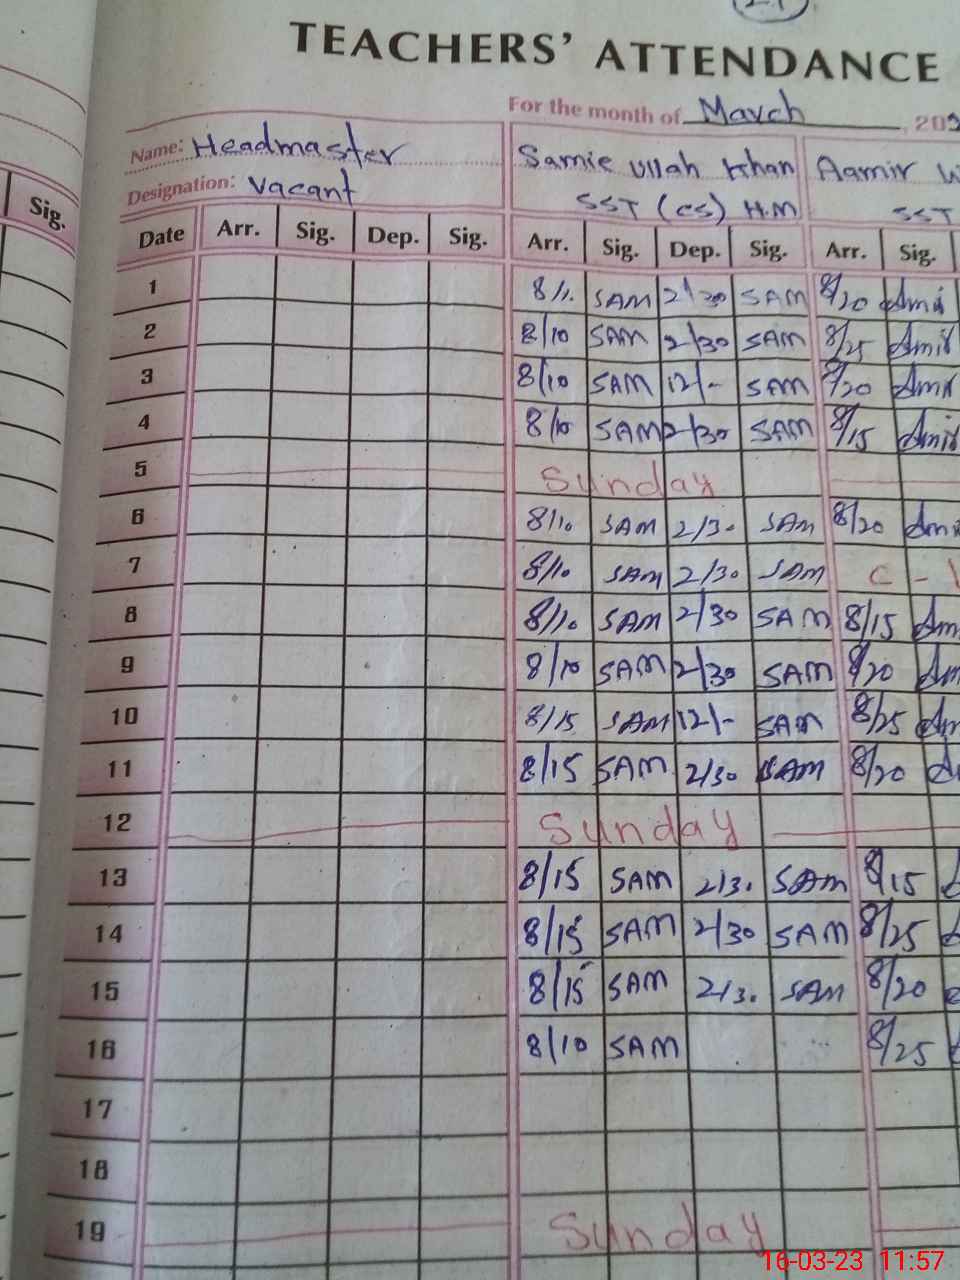 TEACHERS' ATTENDANCE
For the month of March, 202
Name: Headmaster Samie Ullah Khan Aamir
Designation: Vacant SST (CS) H.M SST
Sig. Date Arr. Sig. Dep. Sig. Arr. Sig. Dep. Sig. Arr. Sig.
1 8/10 SAM 2/30 SAM 8/20 Amir
2 8/10 SAM 2/30 SAM 8/25 Amir
3 8/10 SAM 12/- SAM 8/20 Amir
4 8/10 SAM 2/30 SAM 8/15 Amir
5 Sunday
6 8/10 SAM 2/30 SAM 8/20 Ami
7 8/10 SAM 2/30 SAM C -
8 8/10 SAM 2/30 SAM 8/15 Am
9 8/10 SAM 2/30 SAM 8/20 Am
10 8/15 SAM 12/- SAM 8/25 Am
11 8/15 SAM 2/30 SAM 8/20
12 Sunday
13 8/15 SAM 2/30 SAM 8/15
14 8/15 SAM 2/30 SAM 8/25
15 8/15 SAM 2/30 SAM 8/20
16 8/10 SAM 8/25
17
18
19 Sunday
16-03-23 11:57